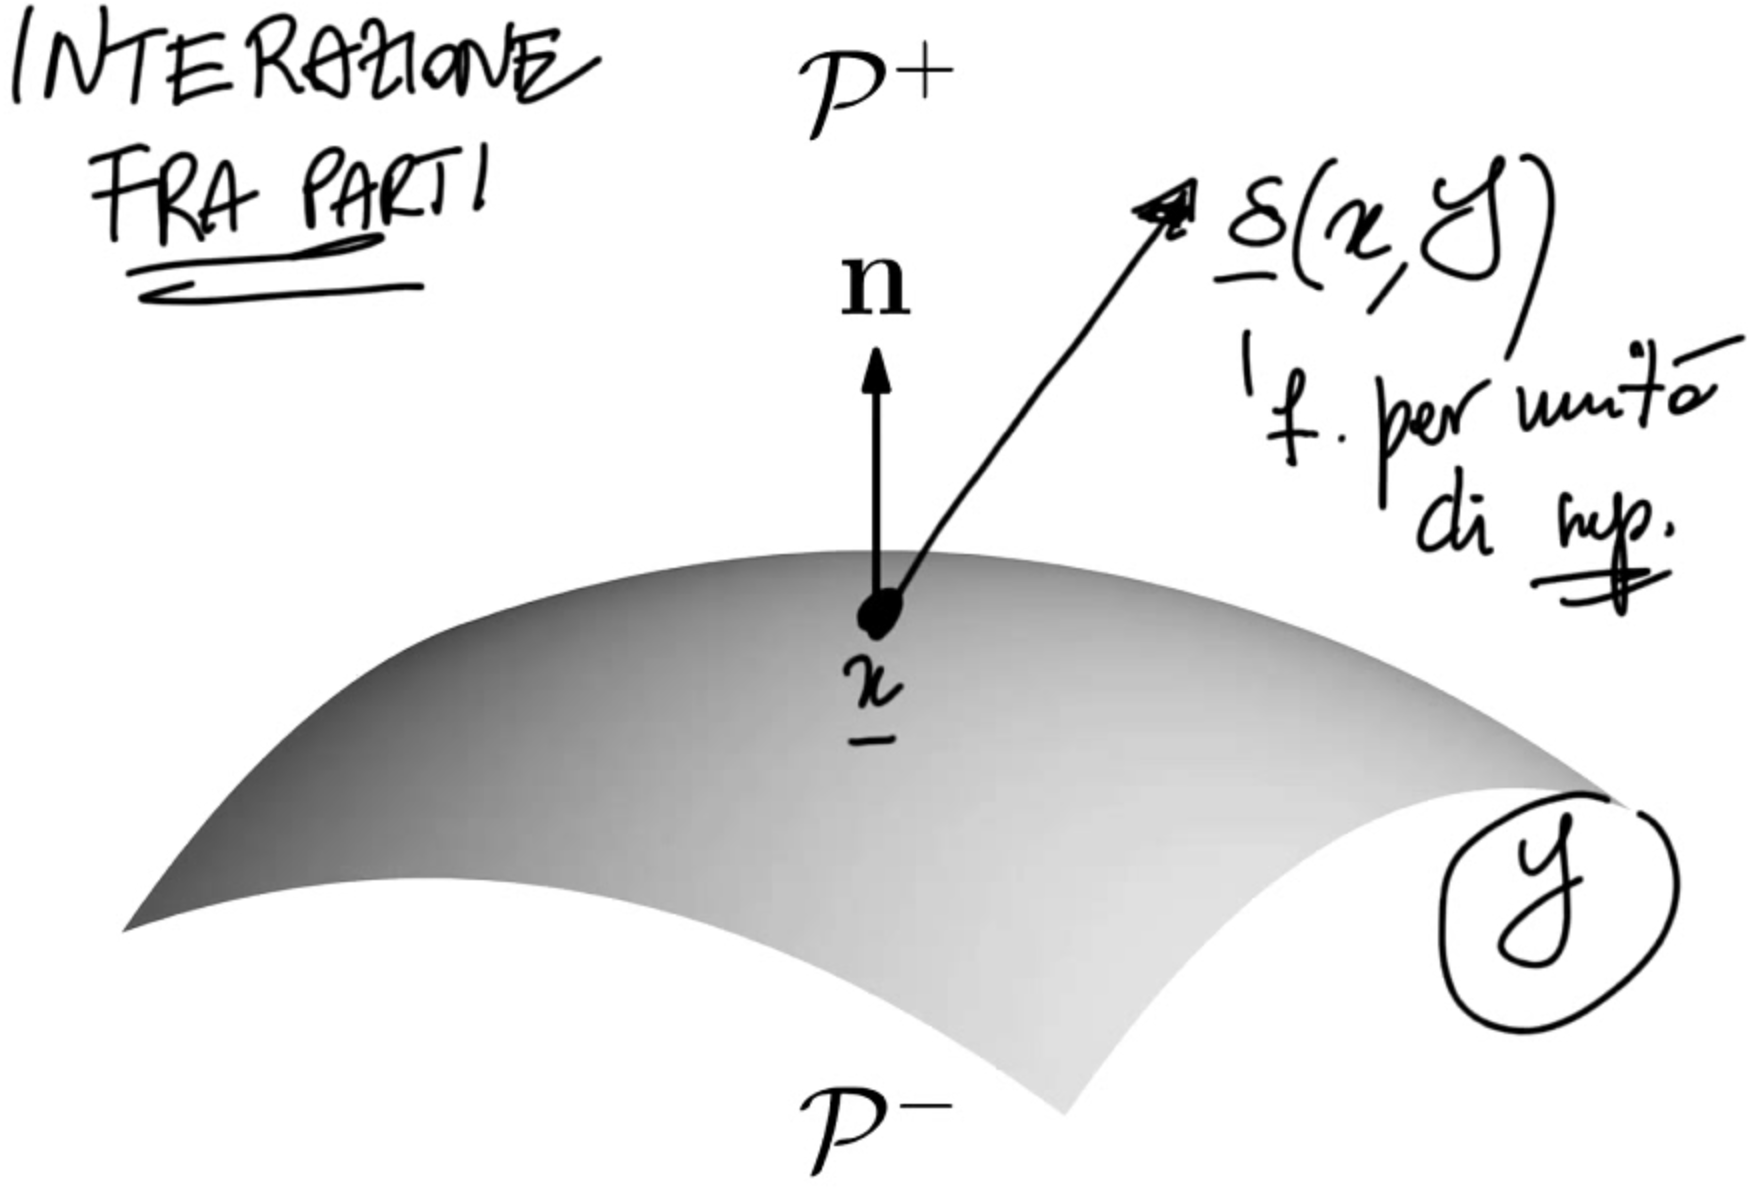 INTERAZIONE
FRA PARTI
𝒫⁺
n
s(x, y)
f. per unità
di sup.
x
y
𝒫⁻